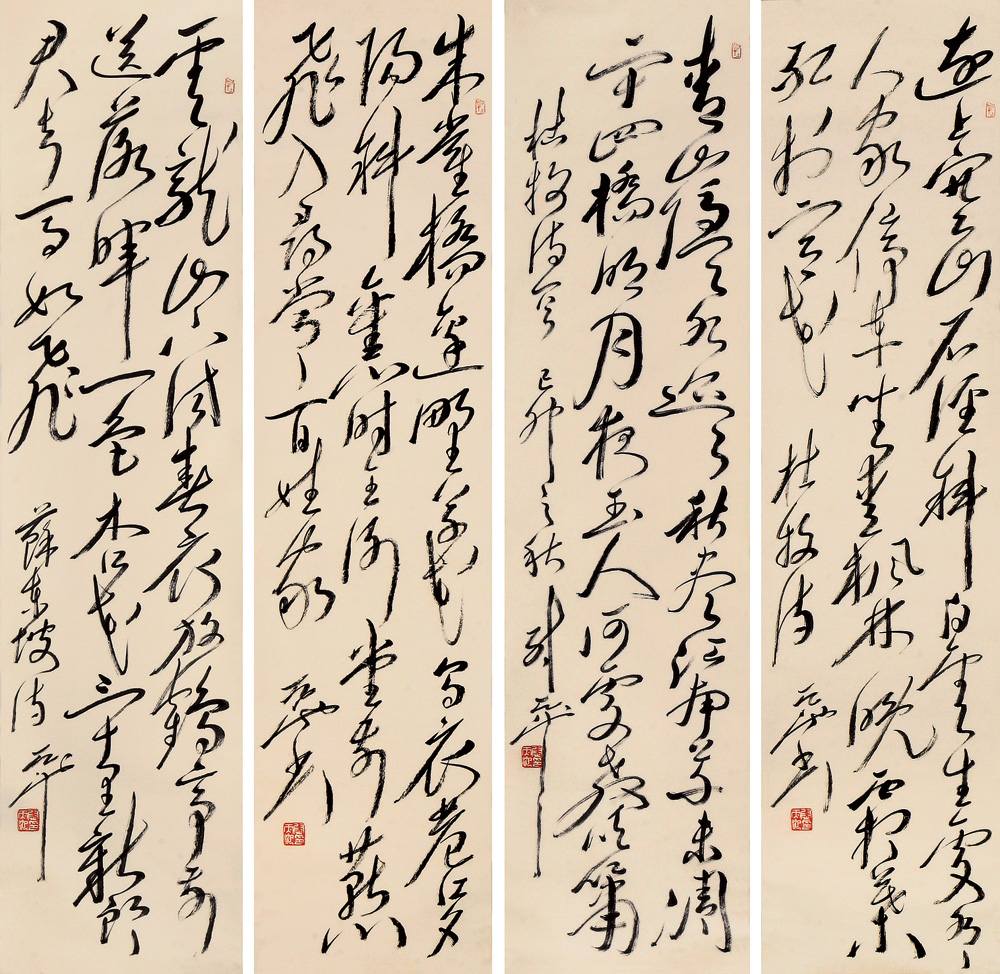 遠上寒山石徑斜白雲生處有
人家停車坐愛楓林晚霜葉
紅於二月花 杜牧詩 書
青山隱隱水迢迢秋盡江南草未凋
二十四橋明月夜玉人何處教吹簫
杜牧詩 己卯之秋
朱雀橋邊野草花烏衣巷口夕
陽斜舊時王謝堂前燕
飛入尋常百姓家 書
雲龍山下試春衣放鶴亭前
送落暉一色杏花三十里新郎
君去馬如飛 蘇東坡詩